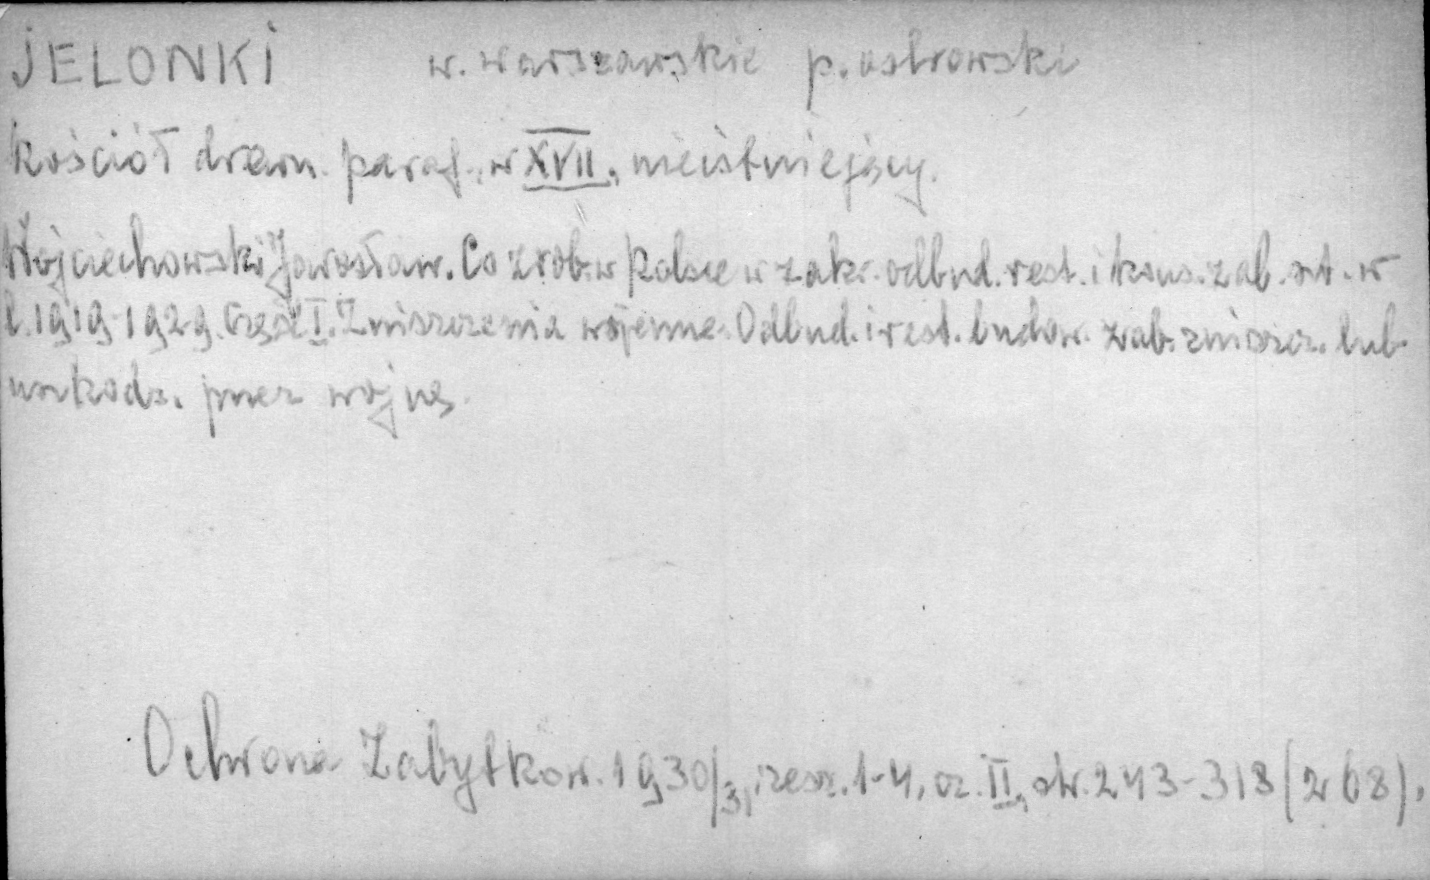 JELONKI w. warszawskie p. ostrowski
kościół drewn. paraf. w XVII, nieistniejący.
Wojciechowski Jarosław. Co zrob. w Polsce w zakr. odbud. rest. i kons. zab. szt. w
l. 1919-1929. Część I. Zniszczenia wojenne. Odbud. i rest. budow. zab. zniszcz. lub
uszkodz. przez wojnę.
Ochrona Zabytków. 1930/31, zesz. 1-4, cz. II, str. 243-318 (268).